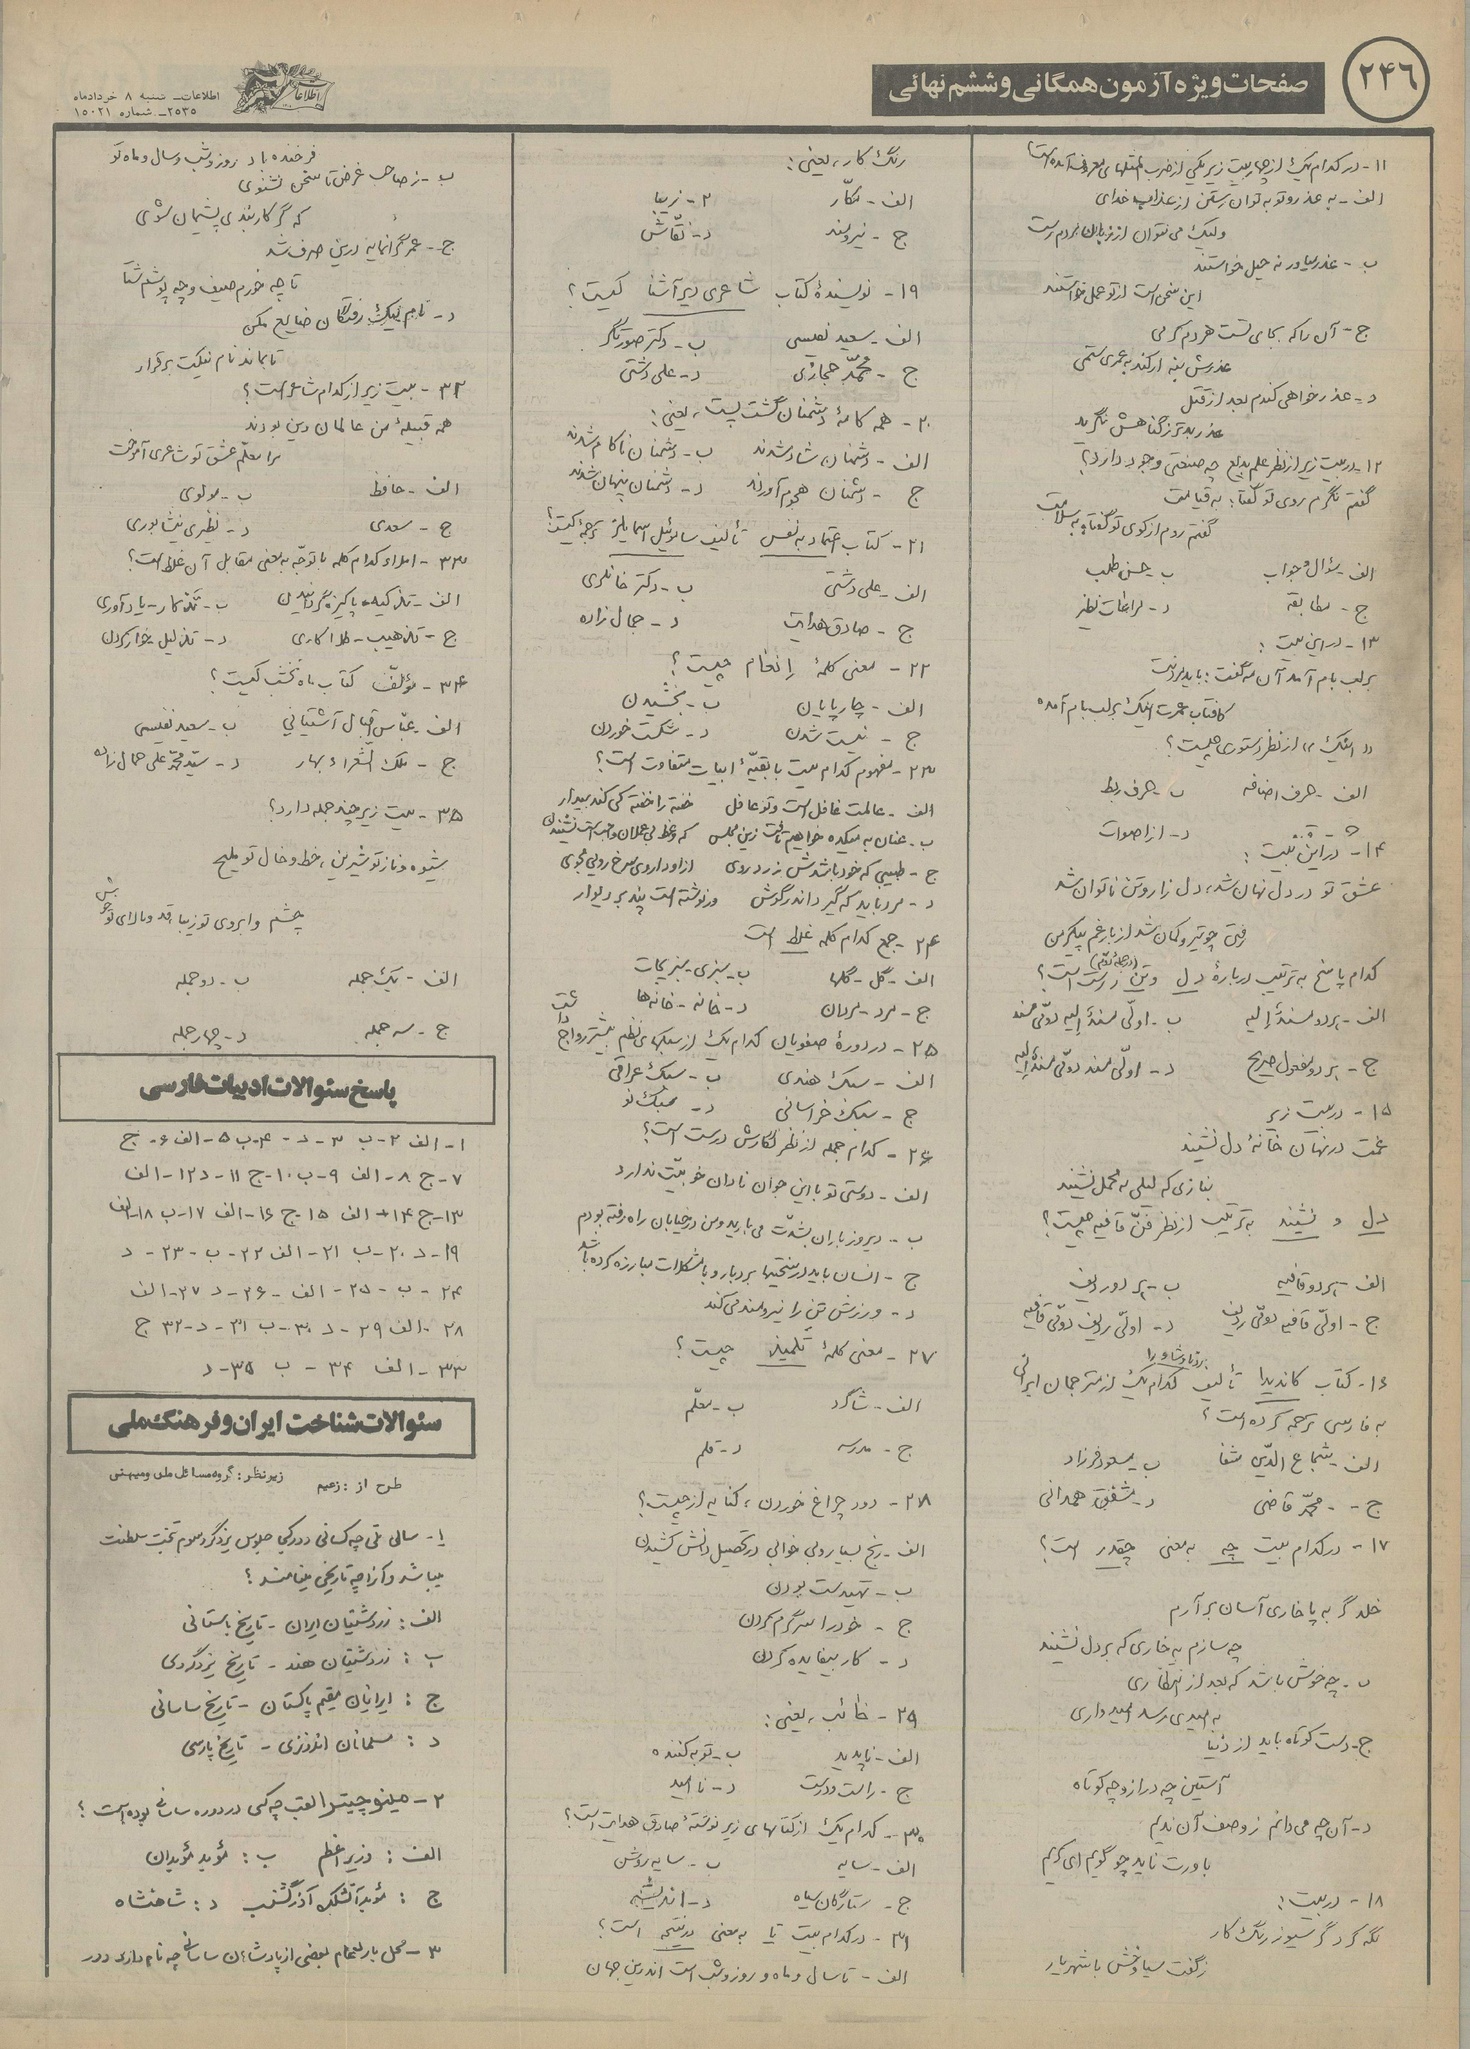 ۲۴۶
صفحات ویژه آزمون همگانی و ششم نهائی
اطلاعات
اطلاعات ـ شنبه ۸ خردادماه
۲۵۳۵ ـ شماره ۱۵۰۲۱
۱۱ - در کدام یک از چهار بیت زیر یکی از ضرب المثلهای معروف آمده است؟
الف - به عذر و توبه توان رستن از عذاب خدای
ولیک می نتوان از زبان مردم رست
ب - عذر میاور نه حیل خواستند
این سخن است از تو عمل خواستند
ج - آن را که بجای تست هر دم کرمی
عذرش بنه ار کند به عمری ستمی
د - عذر خواهی کندم بعد از قتل
عذر بدتر ز گناهش نگرید
۱۲ - در بیت زیر از نظر علم بدیع چه صنعتی وجود دارد؟
گفتم نگرم روی تو گفتا: به قیامت
گفتم روم از کوی تو گفتا: به سلامت
الف - سؤال و جواب ب - حسن طلب
ج - مطابقه د - مراعات نظیر
۱۳ - در این بیت:
بر لب بام آمد آن مه گفت: باید مردنت
کافتاب عمرت اینک بر لب بام آمده
«اینک» از نظر دستوری چیست؟
الف - حرف اضافه ب - حرف ربط
ج - قید د - از اصوات
۱۴ - در این بیت:
عشق تو در دل نهان شد، دل زار و تن ناتوان شد
رفتی چو تیر و کمان شد از بار غم پیکر من
کدام پاسخ به ترتیب درباره دل و تن (در جمله دوم) درست است؟
الف - هر دو مسندٌ الیه ب - اولی مسندٌ الیه دومی مسند
ج - هر دو مفعول صریح د - اولی مسند دومی مسندٌ الیه
۱۵ - در بیت زیر
غمت در نهان خانهٔ دل نشیند
بنازی که لیلی به محمل نشیند
دل و نشیند به ترتیب از نظر فن قافیه چیست؟
الف - هر دو قافیه ب - هر دو ردیف
ج - اولی قافیه دومی ردیف د - اولی ردیف دومی قافیه
۱۶ - کتاب کاندیدا تألیف برناردشاو را کدام یک از مترجمان ایرانی
به فارسی ترجمه کرده است؟
الف - شجاع الدین شفا ب - مسعود فرزاد
ج - محمد قاضی د - مشفق همدانی
۱۷ - در کدام بیت چه به معنی چقدر است؟
خلد گر به پا خاری آسان برآرم
چه سازم به خاری که بر دل نشیند
ب - چه خوش باشد که بعد از انتظاری
به امیدی رسد امیدواری
ج - دست کوتاه باید از دنیا
آستین چه دراز و چه کوتاه
د - آن چه می دانم ز وصف آن ندیم
باورت ناید چو گویم ای کریم
۱۸ - در بیت:
نگه کرد گرسیوز رنگ کار
ز گفت سیاوخش با شهریار
رنگ کار، یعنی:
الف - مکّار ۲ - زیبا
ج - نیرومند د - نقّاش
۱۹ - نویسندهٔ کتاب شاعری دیرآشنا کیست؟
الف - سعید نفیسی ب - دکتر صورتگر
ج - محمّد حجازی د - علی دشتی
۲۰ - همه کامهٔ دشمنان گشت پست، یعنی:
الف - دشمنان شاد شدند ب - دشمنان ناکام شدند
ج - دشمنان هجوم آورند د - دشمنان پنهان شدند
۲۱ - کتاب اعتماد به نفس تألیف ساموئیل اسمایلز ترجمهٔ کیست؟
الف - علی دشتی ب - دکتر خانلری
ج - صادق هدایت د - جمال زاده
۲۲ - معنی کلمهٔ اِنعام چیست؟
الف - چارپایان ب - بخشیدن
ج - نیست شدن د - شکست خوردن
۲۳ - مفهوم کدام بیت با بقیّهٔ ابیات متفاوت است؟
الف - عالمت غافل است و تو غافل خفته را خفته کی کند بیدار
ب - عنان به میکده خواهیم تافت زین مجلس که وعظ بی عملان واجب است نشنیدن
ج - طبیبی که خود باشدش زرد روی از او داروی سرخ رویی مجوی
د - مرد باید که گیرد اندر گوش ور نوشته است پند بر دیوار
۲۴ - جمع کدام کلمه غلط است
الف - گل - گلها ب - سبزی - سبزیجات
ج - مرد - مردان د - خانه - خانه ها
۲۵ - در دورهٔ صفویان کدام یک از سبکهای نظم بیشتر رواج داشت
الف - سبک هندی ب - سبک عراقی
ج - سبک خراسانی د - سبک نو
۲۶ - کدام جمله از نظر نگارش درست است؟
الف - دوستی تو با این جوان نادان خوبیّت ندارد
ب - دیروز باران بشدّت می بارید و من در خیابان راه رفته بودم
ج - انسان باید در سختیها بردبار و با مشکلات مبارزه کرده باشد
د - ورزش تن را نیرومند می کند
۲۷ - معنی کلمهٔ تلمیذ چیست؟
الف - شاگرد ب - معلّم
ج - مدرسه د - قلم
۲۸ - دود چراغ خوردن، کنایه از چیست؟
الف - رنج بسیار و بی خوابی در تحصیل دانش کشیدن
ب - تهیدست بودن
ج - خود را سرگرم کردن
د - کار بیفایده کردن
۲۹ - خائب، یعنی:
الف - ناپدید ب - توبه کننده
ج - راست و درست د - ناامید
۳۰ - کدام یک از کتابهای زیر نوشتهٔ صادق هدایت است؟
الف - سایه ب - سایه روشن
ج - ستارگان سیاه د - اندیشه
۳۱ - در کدام بیت تا به معنی در نتیجه است؟
الف - تا سال و ماه و روز و شب است اندرین جهان
فرخنده باد روز و شب و سال و ماه تو
ب - ز صاحب غرض تا سخن نشنوی
که گر کاربندی پشیمان شوی
ج - عمر گرانمایه درین صرف شد
تا چه خورم صیف و چه پوشم شتا
د - نام نیک رفتگان ضایع مکن
تا بماند نام نیکت برقرار
۳۲ - بیت زیر از کدام شاعر است؟
همه قبیلهٔ من عالمان دین بودند
مرا معلّم عشق تو شاعری آموخت
الف - حافظ ب - مولوی
ج - سعدی د - نظیری نیشابوری
۳۳ - املاء کدام کلمه با توجّه به معنی مقابل آن غلط است؟
الف - تذکیه - پاکیزه گردانیدن ب - تذکار - یادآوری
ج - تذهیب - طلاکاری د - تذلیل - خوار کردن
۳۴ - مؤلّف کتاب ماه نخشب کیست؟
الف - عبّاس اقبال آشتیانی ب - سعید نفیسی
ج - ملک الشّعراء بهار د - سیّد محمّد علی جمال زاده
۳۵ - بیت زیر چند جمله دارد؟
شیوه و ناز تو شیرین، خط و خال تو ملیح
چشم و ابروی تو زیبا قد و بالای تو خوش
الف - یک جمله ب - دو جمله
ج - سه جمله د - چهار جمله
پاسخ سئوالات ادبیات فارسی
۱ - الف ۲ - ب ۳ - د - ۴ - ب ۵ - الف ۶ - ج
۷ - ج ۸ - الف ۹ - ب ۱۰ - ج ۱۱ - د ۱۲ - الف
۱۳ - ج ۱۴ - الف ۱۵ - ج ۱۶ - الف ۱۷ - ب ۱۸ - الف
۱۹ - د ۲۰ - ب ۲۱ - الف ۲۲ - ب - ۲۳ - د
۲۴ - ب - ۲۵ - الف - ۲۶ - د ۲۷ - الف
۲۸ - الف ۲۹ - د ۳۰ - ب ۳۱ - د - ۳۲ ج
۳۳ - الف ۳۴ - ب ۳۵ - د
سئوالات شناخت ایران و فرهنگ ملی
طرح از : زعیم زیر نظر : گروه مسائل ملی و میهنی
۱ - سالی ملی چه کسانی جلوس یزدگرد سوم تخت سلطنت
میباشد و آنرا چه تاریخی مینامند؟
الف : زردشتیان ایران - تاریخ باستانی
ب : زردشتیان هند - تاریخ یزدگردی
ج : ایرانیان مقیم پاکستان - تاریخ ساسانی
د : مسلمانان اندونزی - تاریخ پارسی
۲ - مینو چیتر لقب چه کسی در دوره ساسانی بوده است؟
الف : وزیر اعظم ب : مؤبد مؤبدان
ج : مؤبد آتشکده آذرگشنسب د : شاهنشاه
۳ - محل بارعام بعضی از پادشاهان ساسانی چه نام دارد و در